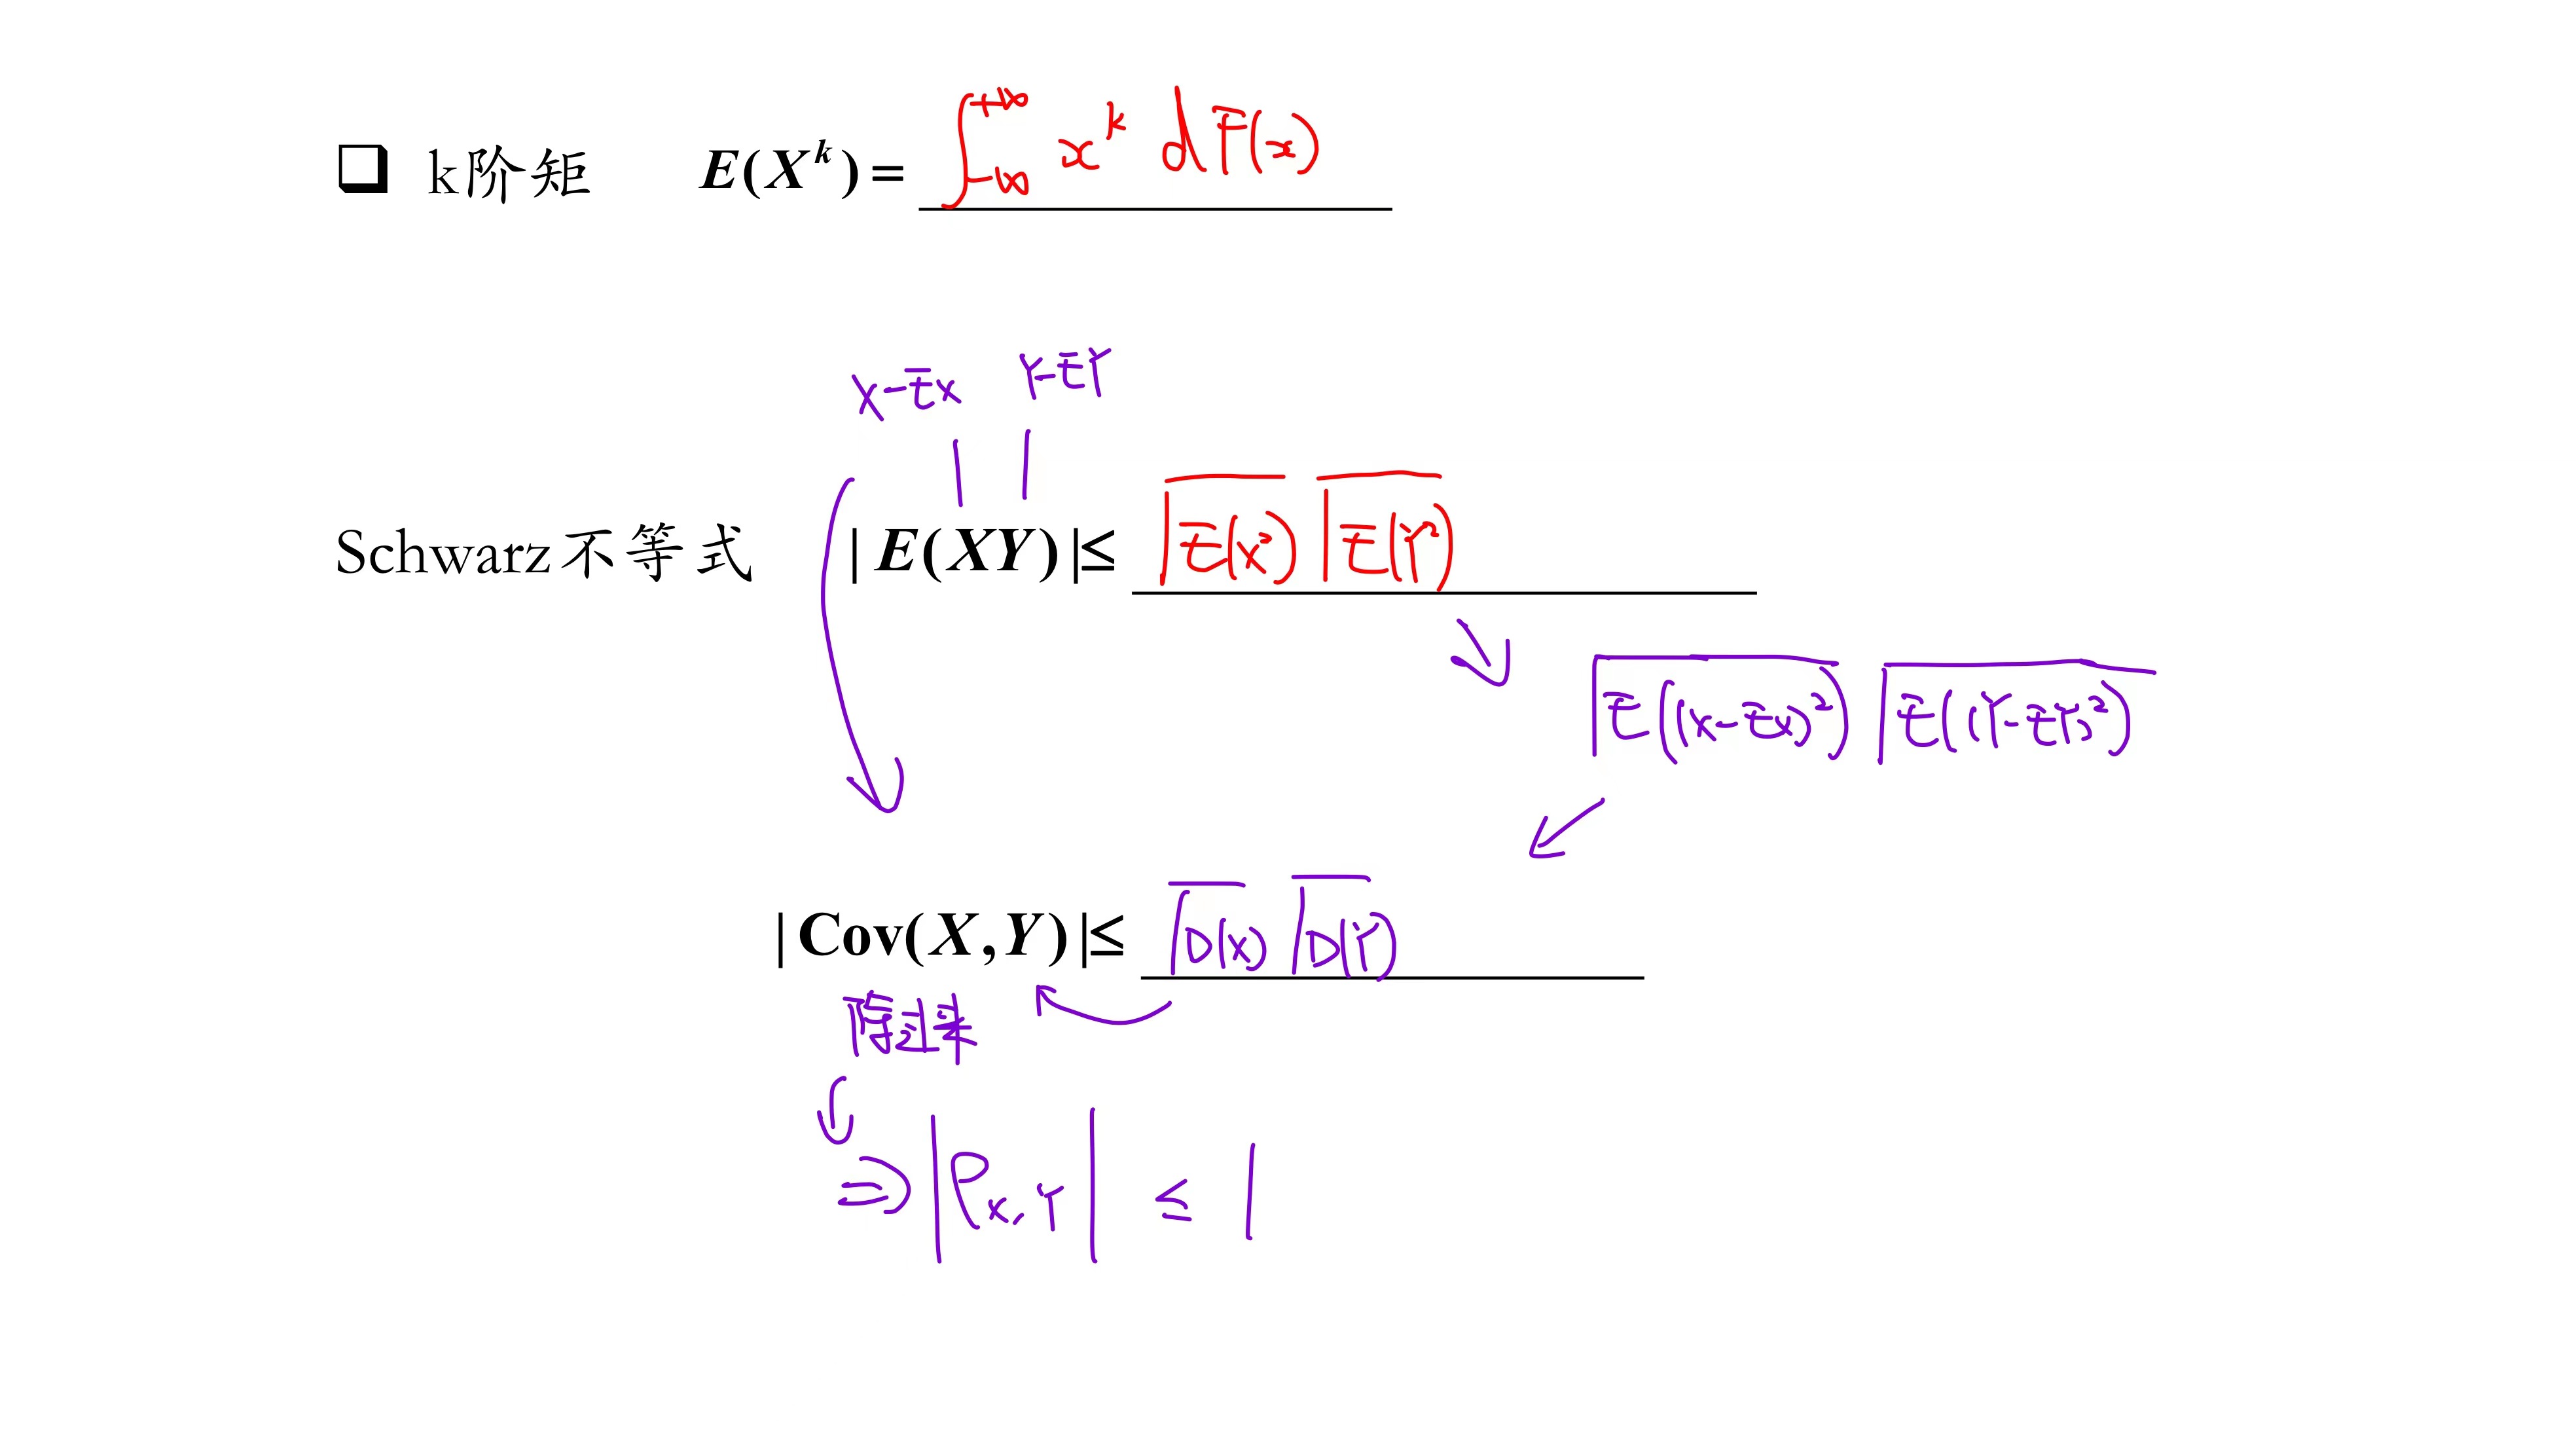 ❑ k阶矩 E(X^k) = ∫_{-∞}^{+∞} x^k dF(x)
X-EX Y-EY
Schwarz不等式 |E(XY)|≤ √E(X²) √E(Y²)
√E((X-EX)²) √E((Y-EY)²)
|Cov(X,Y)|≤ √D(X) √D(Y)
除过来
⇒ |ρ_{X,Y}| ≤ 1